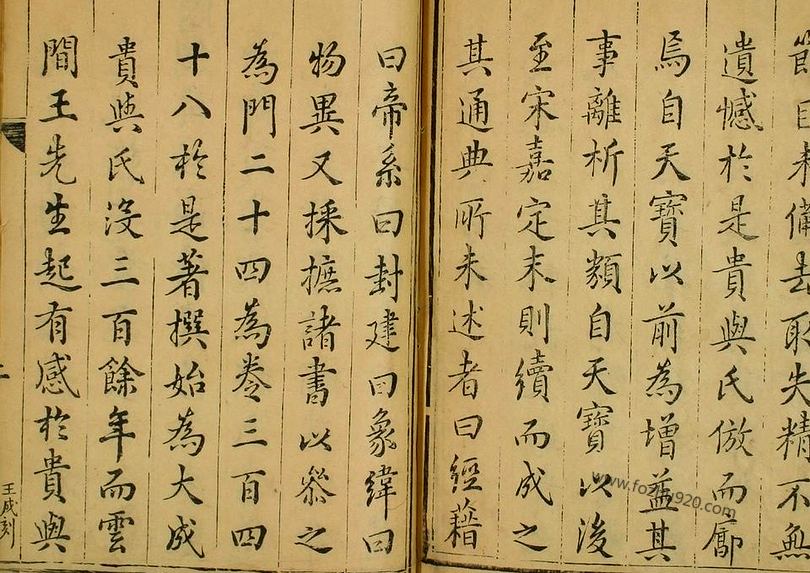 節目未備去取失精不無
遺憾於是貴與氏倣而廓
焉自天寶以前為增益其
事離析其類自天寶以後
至宋嘉定末則續而成之
其通典所未述者曰經藉
曰帝系曰封建曰象緯曰
物異又採摭諸書以叅之
為門二十四為卷三百四
十八於是著撰始為大成
貴與氏沒三百餘年而雲
間王先生起有感於貴與
王成刻